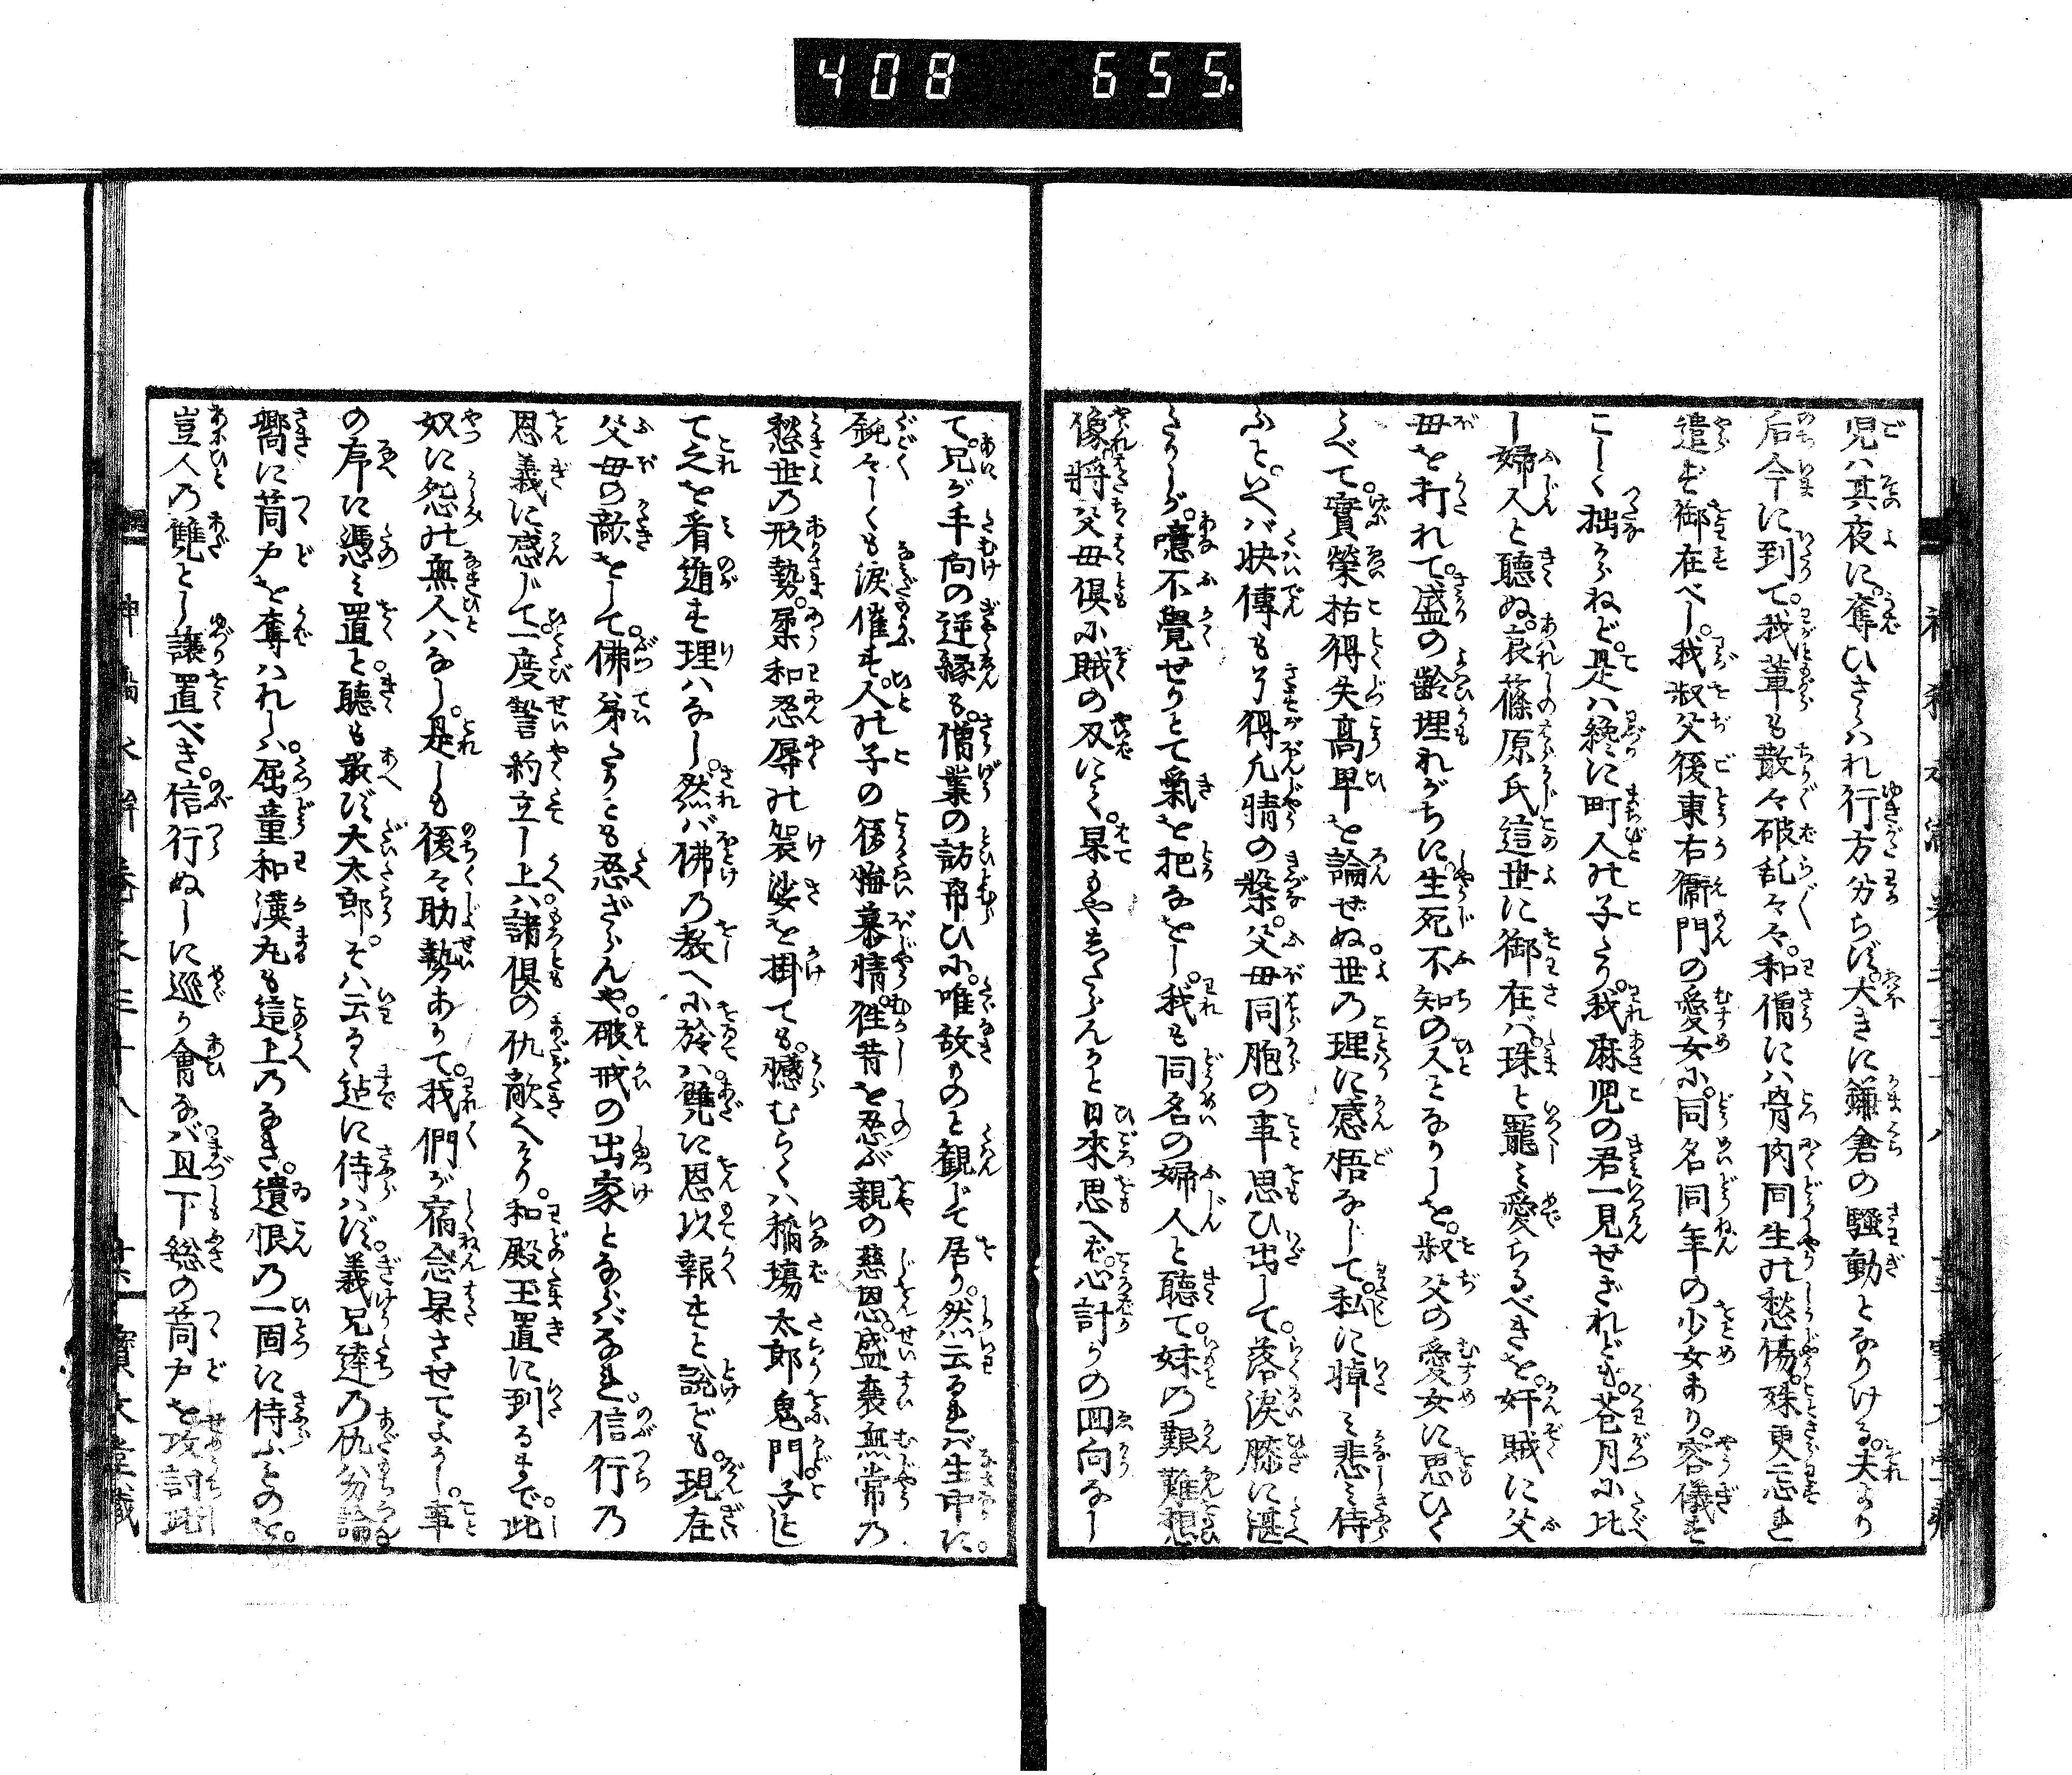 408 655.
児ハ其夜に。奪ひさられ行方分ちず。大きに鎌倉の騒動となりける。夫より
后今に到て。我輩も散々破乱々々。和僧にハ骨肉同生の愁傷。殊更忘れ
遣ず御在べし。我叔父後東右衛門の愛女に。同名同年の少女あり。容儀す
こしく拙からねど。是ハ纔に町人の子たり。我麻児の君一見せざれども。苍月に比
し婦人と聴ぬ。哀篠原氏這世に御在バ。珠と寵み愛らるべきを。奸賊に父
母を打れて。盛の齢埋れがちに。生死不知の人となりしを。叔父の愛女に思ひく
らべて。實榮枯得失高卑を論ぜぬ。世の理に感悟なして。私に悼み悲み侍
ふと。いへバ快傳も得凡情の槃。父母同胞の事思ひ出して。落涙膝に湛
たりしが。噫不覺せりとて氣を把なをし。我も同名の婦人と聴て。妹の艱難想
像。将父母倶に賊の刃にて。果もやしたらんかと日來思へば。心計りの回向なし
て。兄が手向の逆縁も。僧業の訪吊ひに。唯故ものと観じて居り。然云るれバ生中に。
鈍々しくも涙催す。人の子の後悔慕情。往昔を忍ぶ親の慈恩。盛衰無常の
愁世の形勢。柔和忍辱の袈裟を掛ても。憾むらくハ稲塲太郎鬼門子とし
て之を看遁す理ハなし。然バ佛の教へに於ハ讐に恩以報すと説ども。現在
父母の敵をして。佛弟たりとも忍ざらんや。破戒の出家とならバなれ。信行の
恩義に感じて。一度誓約立し上ハ。諸倶の仇敵へり。和殿玉置に到るまで。此
奴に怨の無人ハなし。是しも後々助勢ありて。我們が宿念果させてよかし。事
の序に憑み置と。聴も敢ず大太郎。そハ云るゝ迠に侍ハず。義兄達の仇勿論
嚮に筒戸を奪ハれしハ。屈童和漢丸も這上のなき。遺恨の一固に侍ふものを。
豈人の讐とし譲置べき。信行ぬしに巡り會なバ且下総の筒戸を攻討此
寳文堂蔵